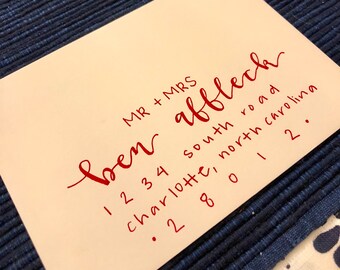 MR + MRS
ben affleck
1 2 3 4 south road
charlotte, north carolina
• 2 8 0 1 2 •